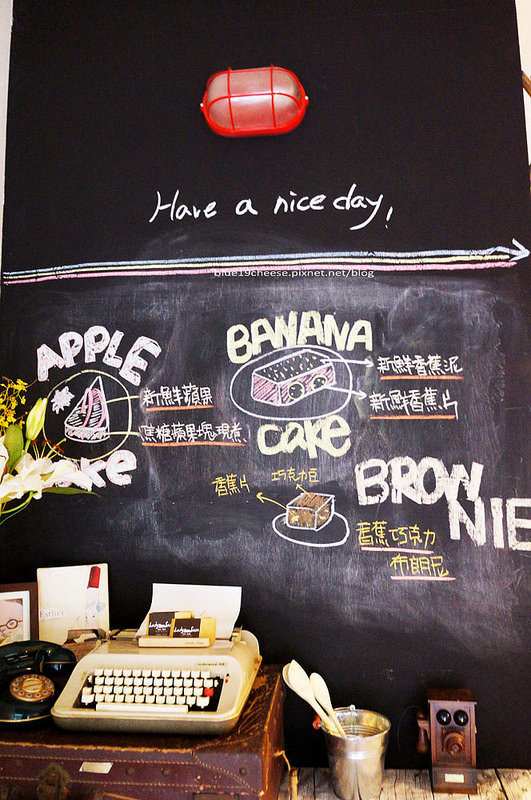 Have a nice day,!
blue19cheese.pixnet.net/blog
APPLE
cake
新鮮蘋果
焦糖蘋果塊現煮、
BANANA
cake
新鮮香蕉泥
新鮮香蕉片
香蕉片
巧克力豆
BROW
NIE
香蕉巧克力
布朗尼
underwood